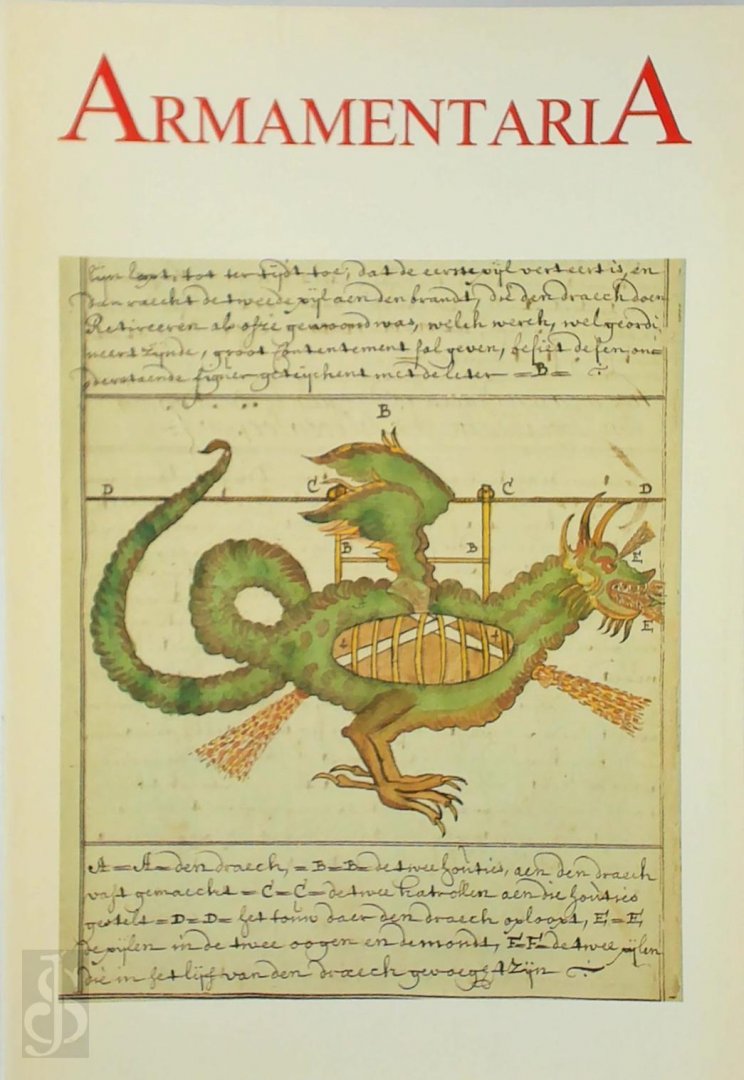 ARMAMENTARIA
lijn loopt, tot ter tijdt toe, dat de eerste pijl verteert is, en
dan raeckt de tweede pijl aen den brandt, die den draech doen
Retireeren als ofze gewoond was, welck werck, wel geordi
neert zijnde, groot Contentement sal geven, besiet desen on=
derstaende figuer geteijckent met de leter =B=
B
D C C D
B B
E
E
A=A= den draech, =B=B= de twee houties, aen den draech
vast gemaeckt =C=C= de twee katrollen aen die houties
gestelt =D=D= het touw daer den draech oploopt, E=E
de pijlen in de twee oogen en de mondt, F F= de twee pijlen
die in het lijf van den draech gevoegt zijn